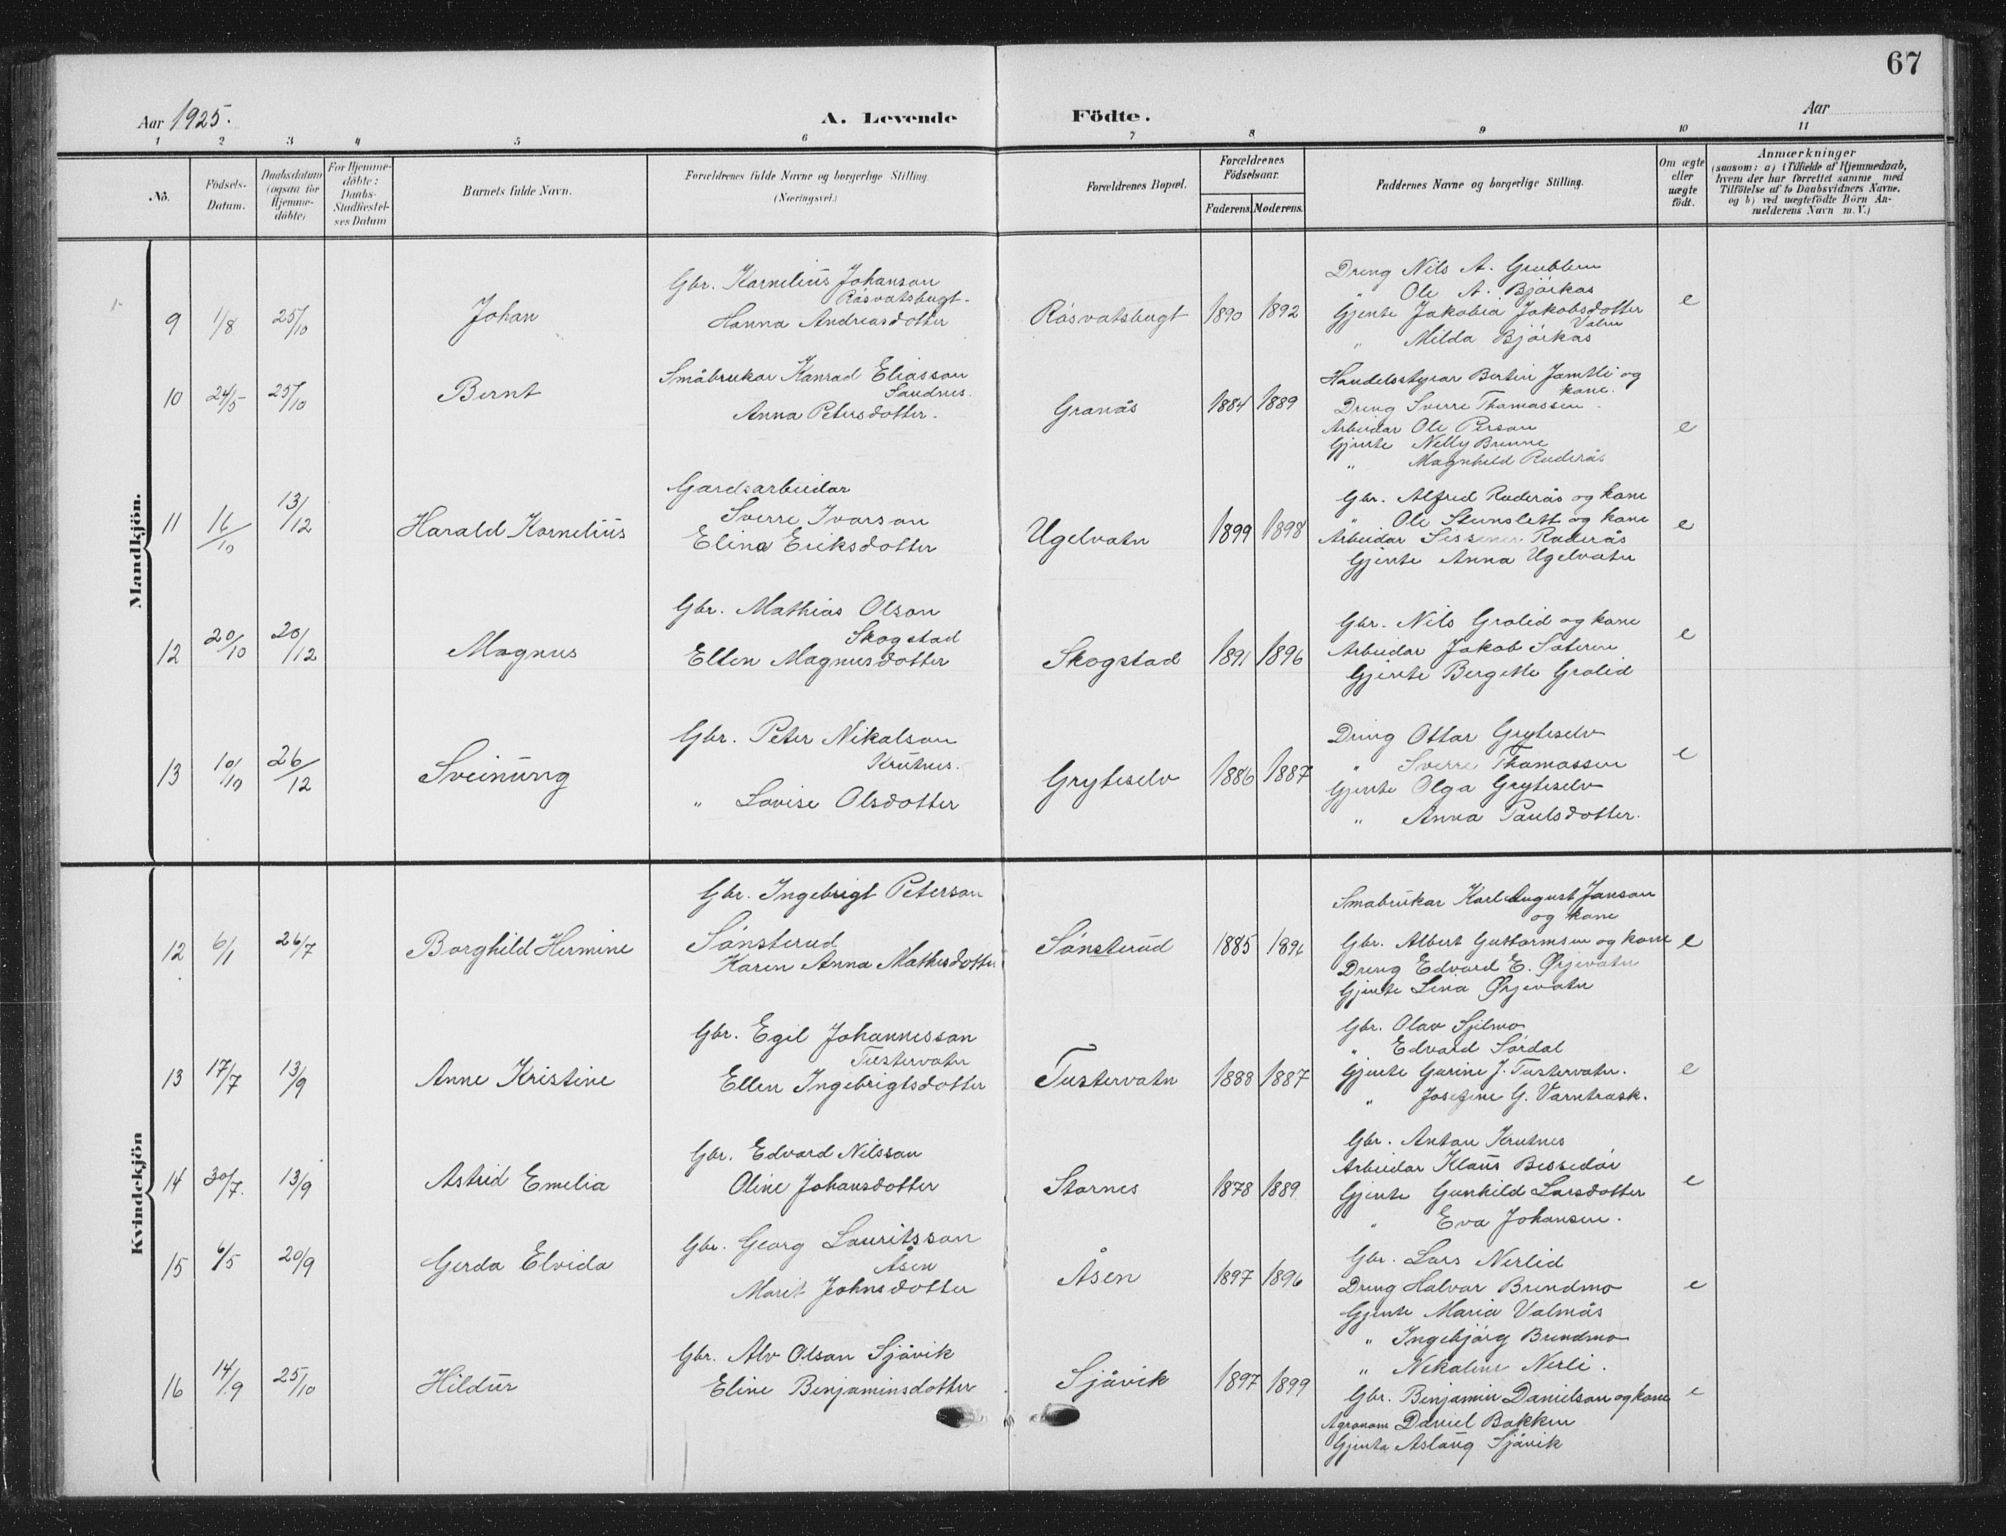 67
Aar 1925.
A. Levende Födte.
Aar
1 2 3 4 5 6 7 8 9 10 11
No.
Födsels-Datum.
Daabsdatum (ogsaa for Hjemme-döbte)
For Hjemme-döbte: Daabs-Stadfæstel-ses Datum
Barnets fulde Navn.
Forældrenes fulde Navne og borgerlige Stilling.
(Næringsvei.)
Forældrenes Bopæl.
Forældrenes Födselsaar.
Faderens. Moderens.
Faddernes Navne og borgerlige Stilling.
Om ægte eller uægte födt.
Anmærkninger
(saasom: a) i Tilfælde af Hjemmedaab,
hvem der har forrettet samme med
Tilföielse af to Daabsvidners Navne.
og b) ved uægtefödte Börn An-
melderens Navn m. V.)
Mandkjön.
9 1/8 25/10 Johan
Gbr. Kornelius Johanson
Røsvatsbugt.
Hanna Andreasdotter
Røsvatsbugt 1890 1892
Dreng Nils A. Grubben
" Ole A. Bjørkås
Gjente Jakobia Jakobsdotter
" Milda Bjørkås
e
10 24/5 25/10 Bernt
Småbrukar Konrad Eliasson
Sandnes.
Anna Petersdotter.
Granås 1884 1889
Handelsstyrar Bertin Jamtli og
kone.
Dreng Sverre Thomassen.
Arbeidar Ole Person
Gjente Nelly Brenne
" Magnhild Ruderås
e
11 16/10 13/12 Harald Kornelius
Gardsarbeidar
Sverre Ivarson
Elina Eriksdotter
Ugelvatn 1899 1898
Gbr. Alfred Ruderås og kone
" Ole Stenslett og kone
Arbeidar Ruderås
Gjente Anna Ugelvatn
e
12 20/10 20/12 Magnus
Gbr. Mathias Olson
Skogstad
Ellen Magnusdotter
Skogstad 1891 1896
Gbr. Nils Grølid og kone
Arbeidar Jakob Sæteren
Gjente Bergette Grølid
e
13 10/10 26/12 Sveinung
Gbr. Peter Nikolson
Krutnes.
" Lovise Olsdotter
Gryteselv 1886 1887
Dreng Ottar Gryteselv
" Sverre Thomassen
Gjente Olga Gryteselv
" Anna Paulsdotter.
e
Kvindekjön
12 6/1 26/7 Borghild Hermine
Gbr. Ingebrigt Peterson
Sønsterud
Karen Anna Mathisdotter
Sønsterud 1885 1896
Småbrukar Karl August Janson
og kone
Gbr. Albert Guttormsen og kone
Dreng Edvard E. Ørjevatn
Gjente Lina Ørjevatn
e
13 17/7 13/9 Anne Kristine
Gbr. Egil Johannesson
Tustervatn
Ellen Ingebrigtsdotter
Tustervatn 1888 1887
Gbr. Olav Sjilmo
" Edvard Sørdal
Gjente Gurine J. Tustervatn.
" Josefine G. Varntræsk.
e
14 30/7. 13/9 Astrid Emelia
Gbr. Edvard Nilsson
Oline Johansdotter
Stornes 1878 1889
Gbr. Anton Krutnes
Arbeidar Klaus Bessedør
Gjente Gunhild Larsdotter
" Eva Johansen.
e
15 6/5 20/9 Gerda Elvida
Gbr. Georg Lauritsson
Åsen
Marit Johnsdotter
Åsen 1897 1896
Gbr. Lars Nerlid
Dreng Halvar Brendmo
Gjente Maria Valmås
" Ingebjørg Brendmo
" Nikoline Nerli.
e
16 14/9 25/10 Hildur
Gbr. Alv Olson Sjåvik
Eline Benjaminsdotter
Sjåvik 1897 1899
Gbr. Benjamin Danielson og kone
Agronom Daniel Bakken
Gjenta Aslaug Sjåvik
e